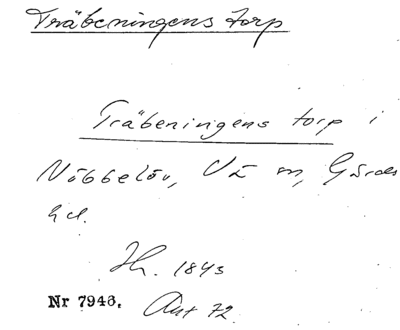 Träbeningens torp
Träbeningens torp i
Nöbbelöv, Vä sn, Gärds
hd.
Hh. 1843
Nr 7946. Ant 72